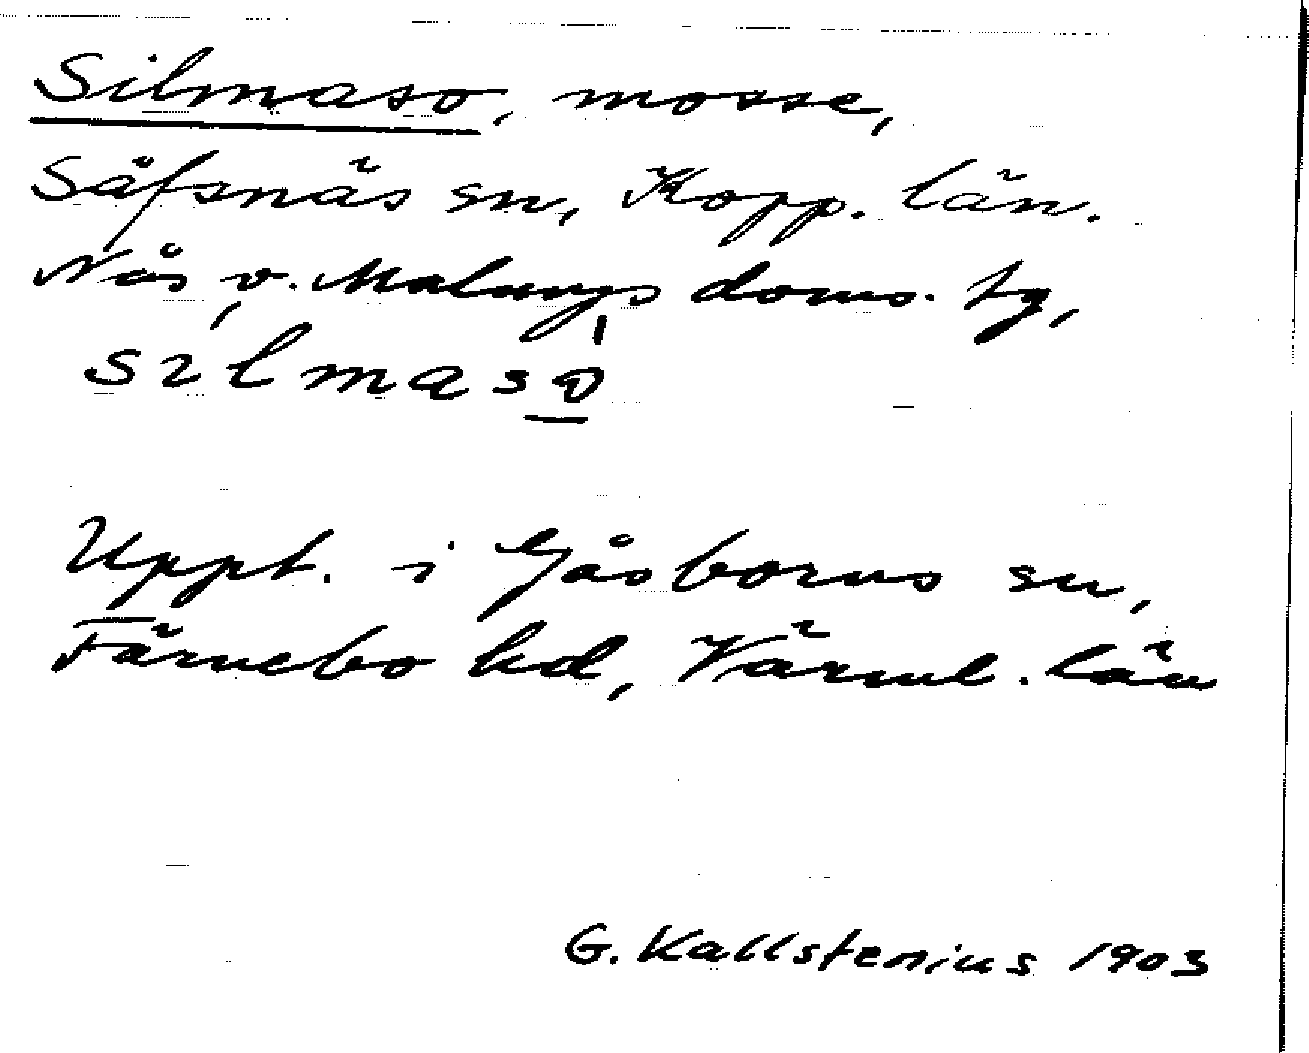 Silmaso, mosse,
Säfsnäs sn, Kopp. län.
Nås o. Malungs doms. tg,
sılmaso
Uppt. i Gåsborns sn,
Färnebo hd, Värml. län
G. Kallstenius 1903